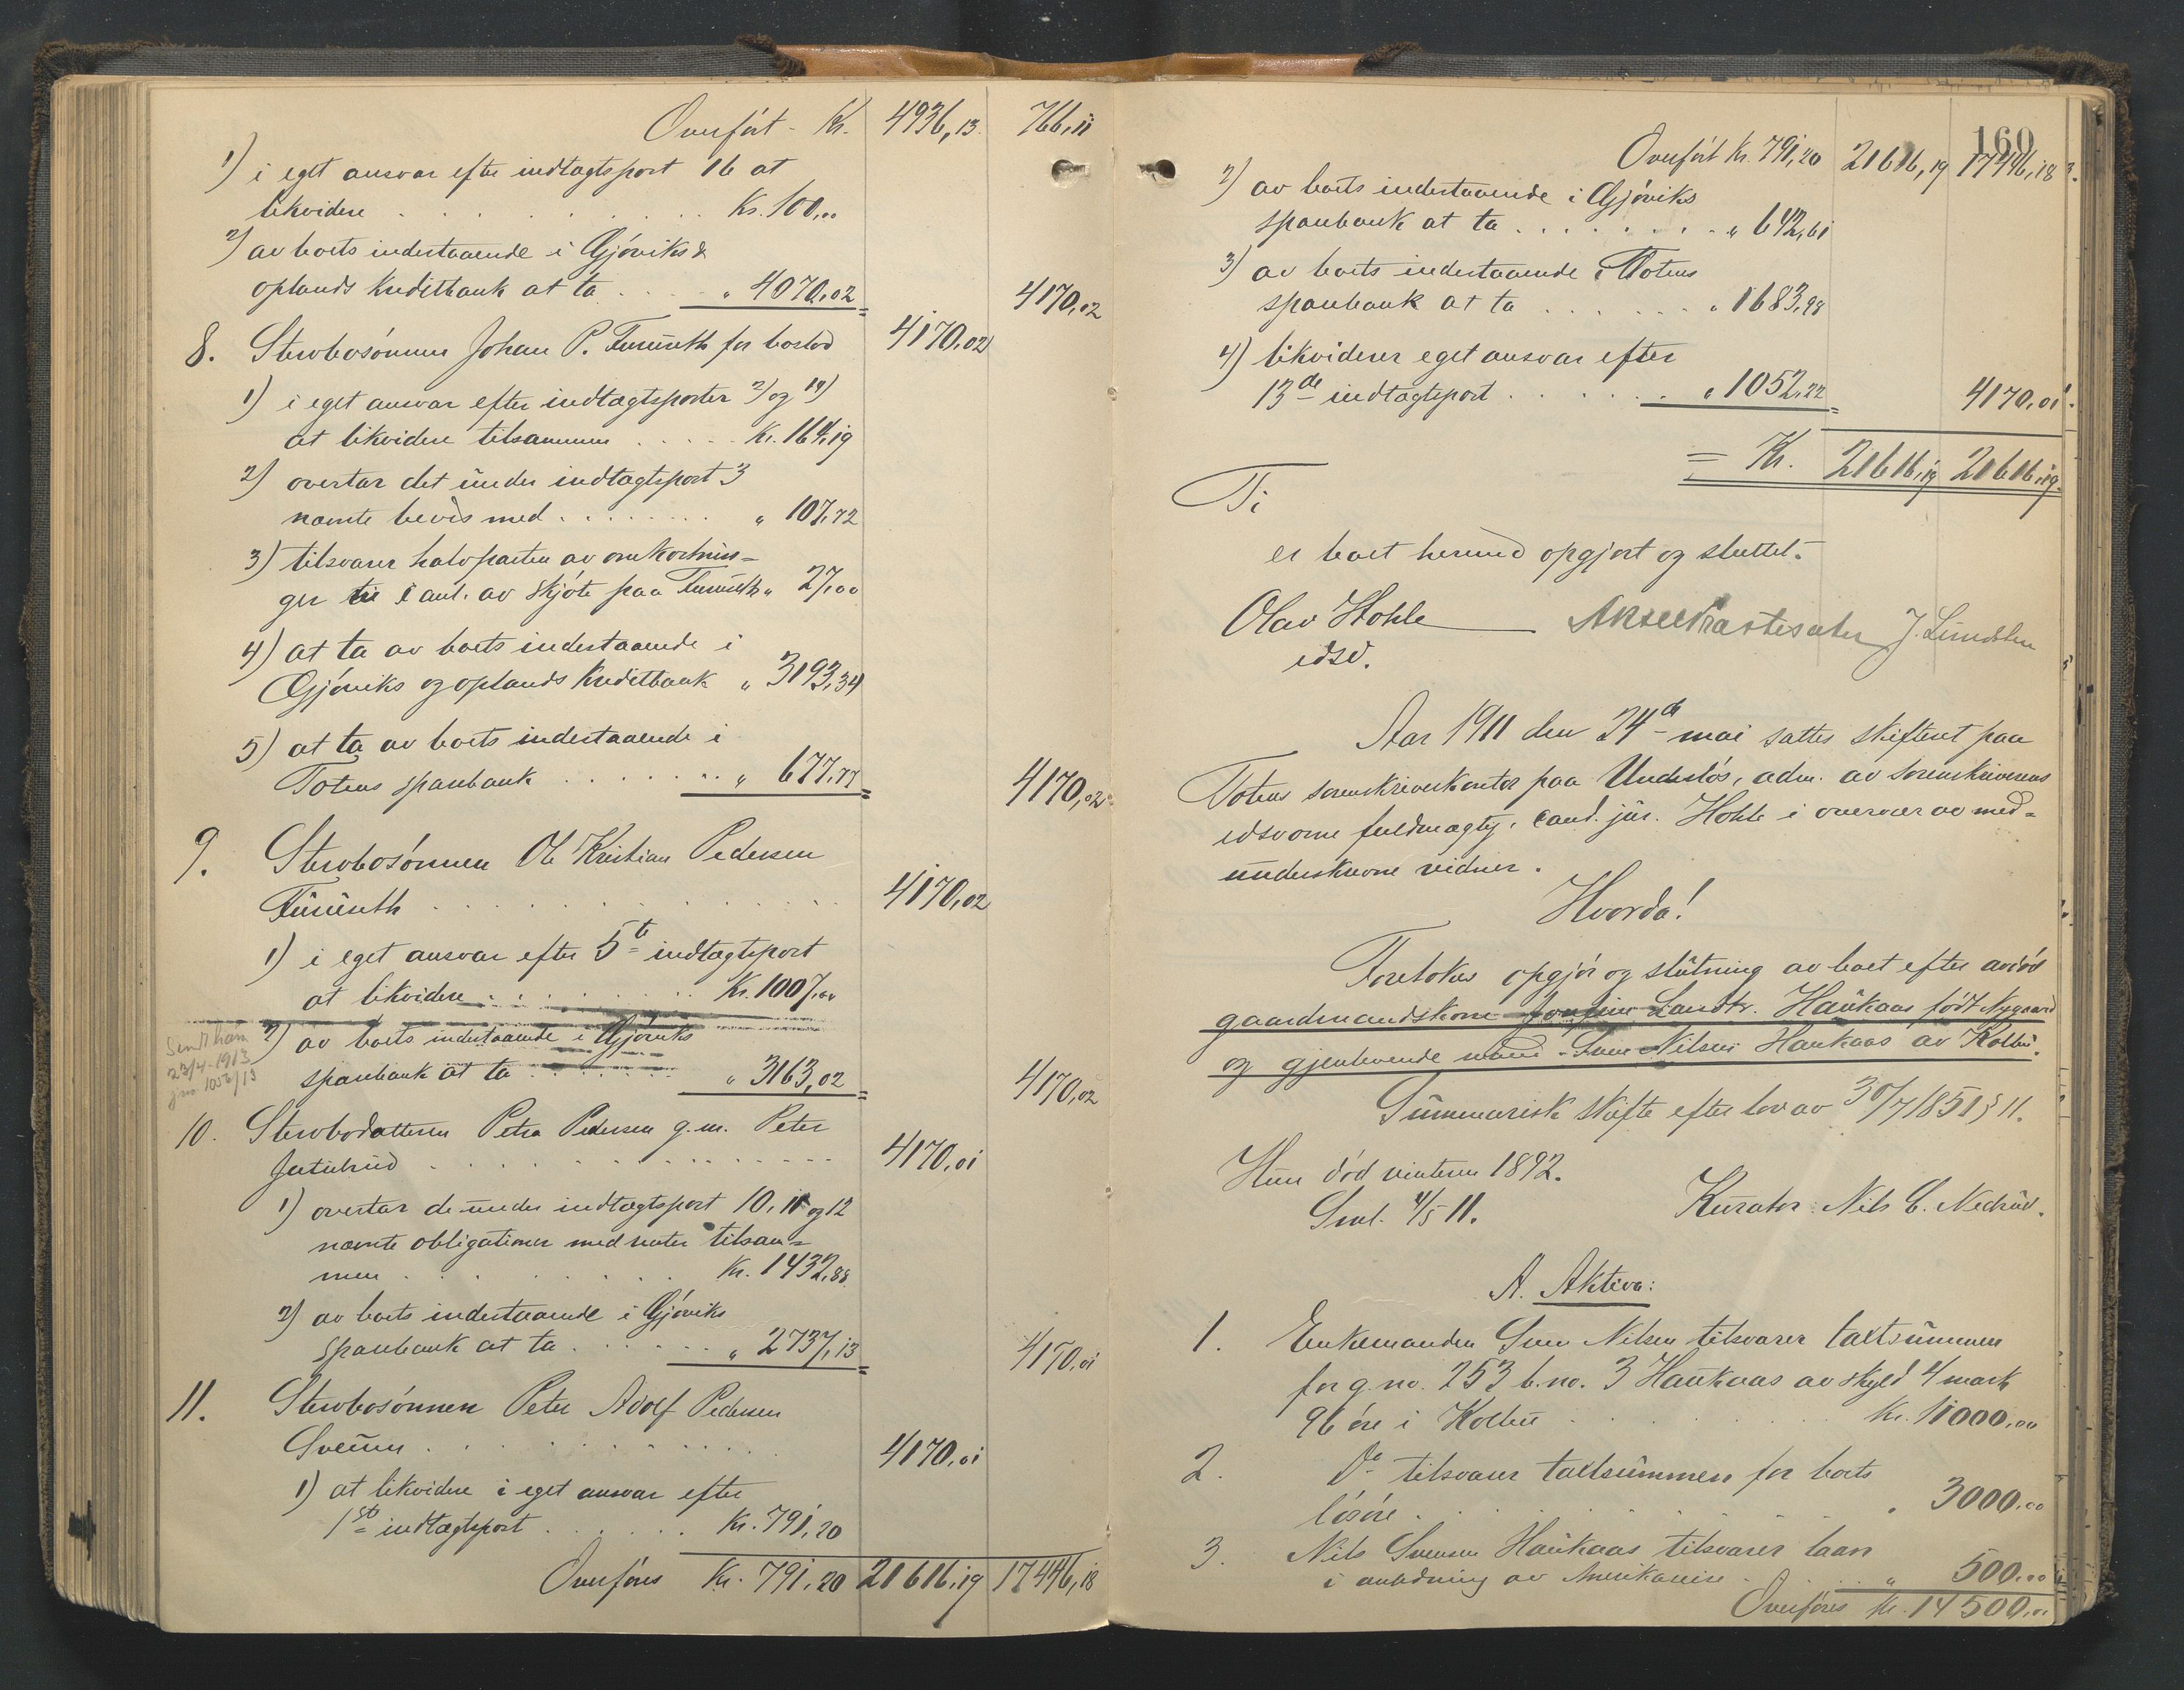 Overført - Kr. 4936,13. 766,11
1) i eget ansvar efter indtægtspost 16 at
likvidere . . . . . . Kr. 100,00
2) av boets indestaaende i Gjøviks &
oplands kreditbank at ta . . . " 4070,02 4170,02
8. Stervbosønnen Johan P. Furuseth for boslod 4170,02
1) i eget ansvar efter indtægtsposter 2) og 14)
at likvidere tilsammen . . . . . Kr. 164,19
2) overtar det under indtægtspost 3
nævnte bevis med . . . . . . . " 107,72
3) tilsvarer halvparten av omkostnin-
ger i anl. av skjøte paa Furuseth " 27,00
4) at ta av boets indestaaende i
Gjøviks og oplands kreditbank " 3193,34
5) at ta av boets indestaaende i
Totens sparebank . . . . . . . " 677,77 4170,02
9. Stervbosønnen Ole Kristian Pedersen
Furuseth . . . . . . . . . . 4170,02
1) i eget ansvar efter 5te indtægtspost
at likvidere . . . . . . . Kr. 1007,00
2) av boets indestaaende i Gjøviks
sparebank at ta . . . . . . " 3163,02 4170,02
Sendt ham
23/4-1913
jno 1056/13
10. Stervbodatteren Petra Pedersen g.m. Peter
. . . . . . . . . . 4170,01
1) overtar de under indtægtspost 10, 11 og 12
nævnte obligationer med renter tilsam-
men . . . . . . . . Kr. 1432,88
2) av boets indestaaende i Gjøviks
sparebank at ta . . . . . . " 2737,13 4170,01
11. Stervbosønnen Peter Adolf Pedersen
Sveum . . . . . . . . . . 4170,01
1) at likvidere i eget ansvar efter
1ste indtægtspost . . . . . . Kr. 791,20
Overføres Kr. 791,20 21616,19 17446,18
160
Overført Kr. 791,20 21616,19 17446,18
2) av boets indestaaende i Gjøviks
sparebank at ta . . . . . . . " 642,61
3) av boets indestaaende i Totens
sparebank at ta . . . . . . . " 1683,98
4) likviderer eget ansvar efter
13de indtægtspost . . . . . . " 1052,22 4170,01
= Kr. 21616,19 21616,19
Ti
er boet hermed opgjort og sluttet.
Olav Hohle Aksel J. Lundsten
edsv.
Aar 1911 den 24de mai sattes skifteret paa
Totens sorenskriverkontor paa Underløs, adm. av sorenskriverens
edsvorne fuldmægtig, cand. jur. Hohle i overvær av med-
underskrevne vidner.
Hvorda!
Foretokes opgjør og slutning av boet efter avdød
gaardmandskone Josefine Larsdtr. Haukaas født Nygaard
og gjenlevende mand Sven Nilsen Haukaas av Kolbu.
Summarisk skifte efter lov av 30/7 1851 § 11.
Hun død vinteren 1892.
Sml. 4/5 11. Kurator: Nils C. Nedrud.
A. Aktiva:
1. Enkemanden Sven Nilsen tilsvarer taktsummen
for g.no. 253 b.no. 3 Haukaas av skyld 4 mark
96 øre i Kolbu . . . . . . Kr. 11000,00
2. Do tilsvarer taktsummen for boets
løsøre . . . . . . . . " 3000,00
3. Nils Svensen Haukaas tilsvarer laan
i anledning av Amerikareise . . . " 500,00
Overføres Kr. 14500,00